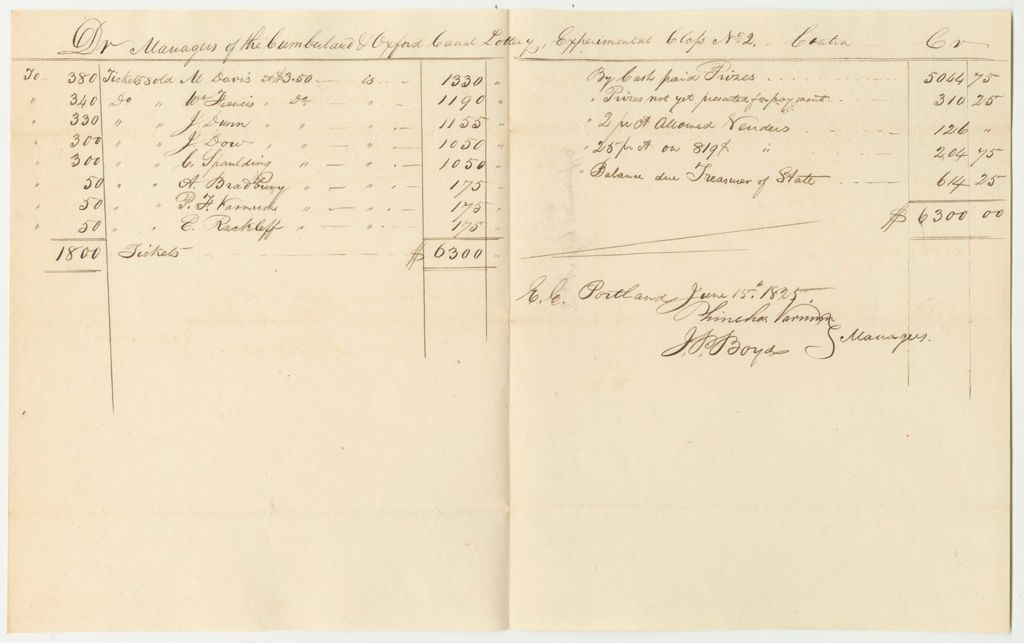 Dr Managers of the Cumberland & Oxford Canal Lottery, Experimental Class No 2. Contra Cr
To 380 Tickets sold M. Davis at $3.50 is 1330 "
" 340 Do " Wm Francis " Do " 1190 "
" 330 " " J Dunn " " " 1155 "
" 300 " " J Dow " " " 1050 "
" 300 " " C. Spaulding " " 1050 "
" 50 " " A. Bradbury " " 175 "
" 50 " " P. F. Varnum " " 175 "
" 50 " " E. Rackleff " " 175 "
1800 Tickets $ 6300 "
By Cash paid Prizes 5044 75
" Prizes not yet presented for payment 310 25
" 2 pr Ct Allowed Venders 126 "
" 25 pr Ct on 819$ " 204 75
" Balance due Treasurer of State 614 25
$ 6300 00
E. E. Portland June 15th 1825.
Phinehas Varnum
J. P. Boyd } Managers.